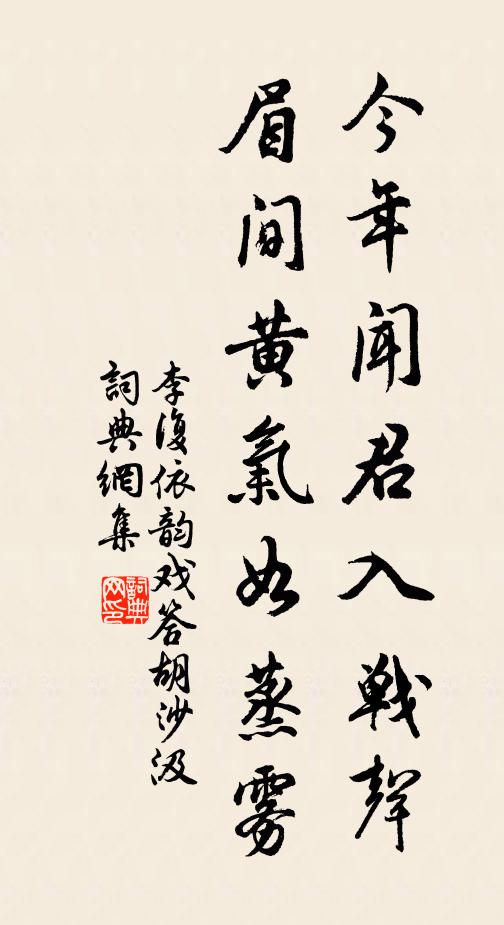 今年闻君入戦聲
眉间黄氣如蒸雾
李復依韵戏答胡沙汲
詞典網集
詞典網印